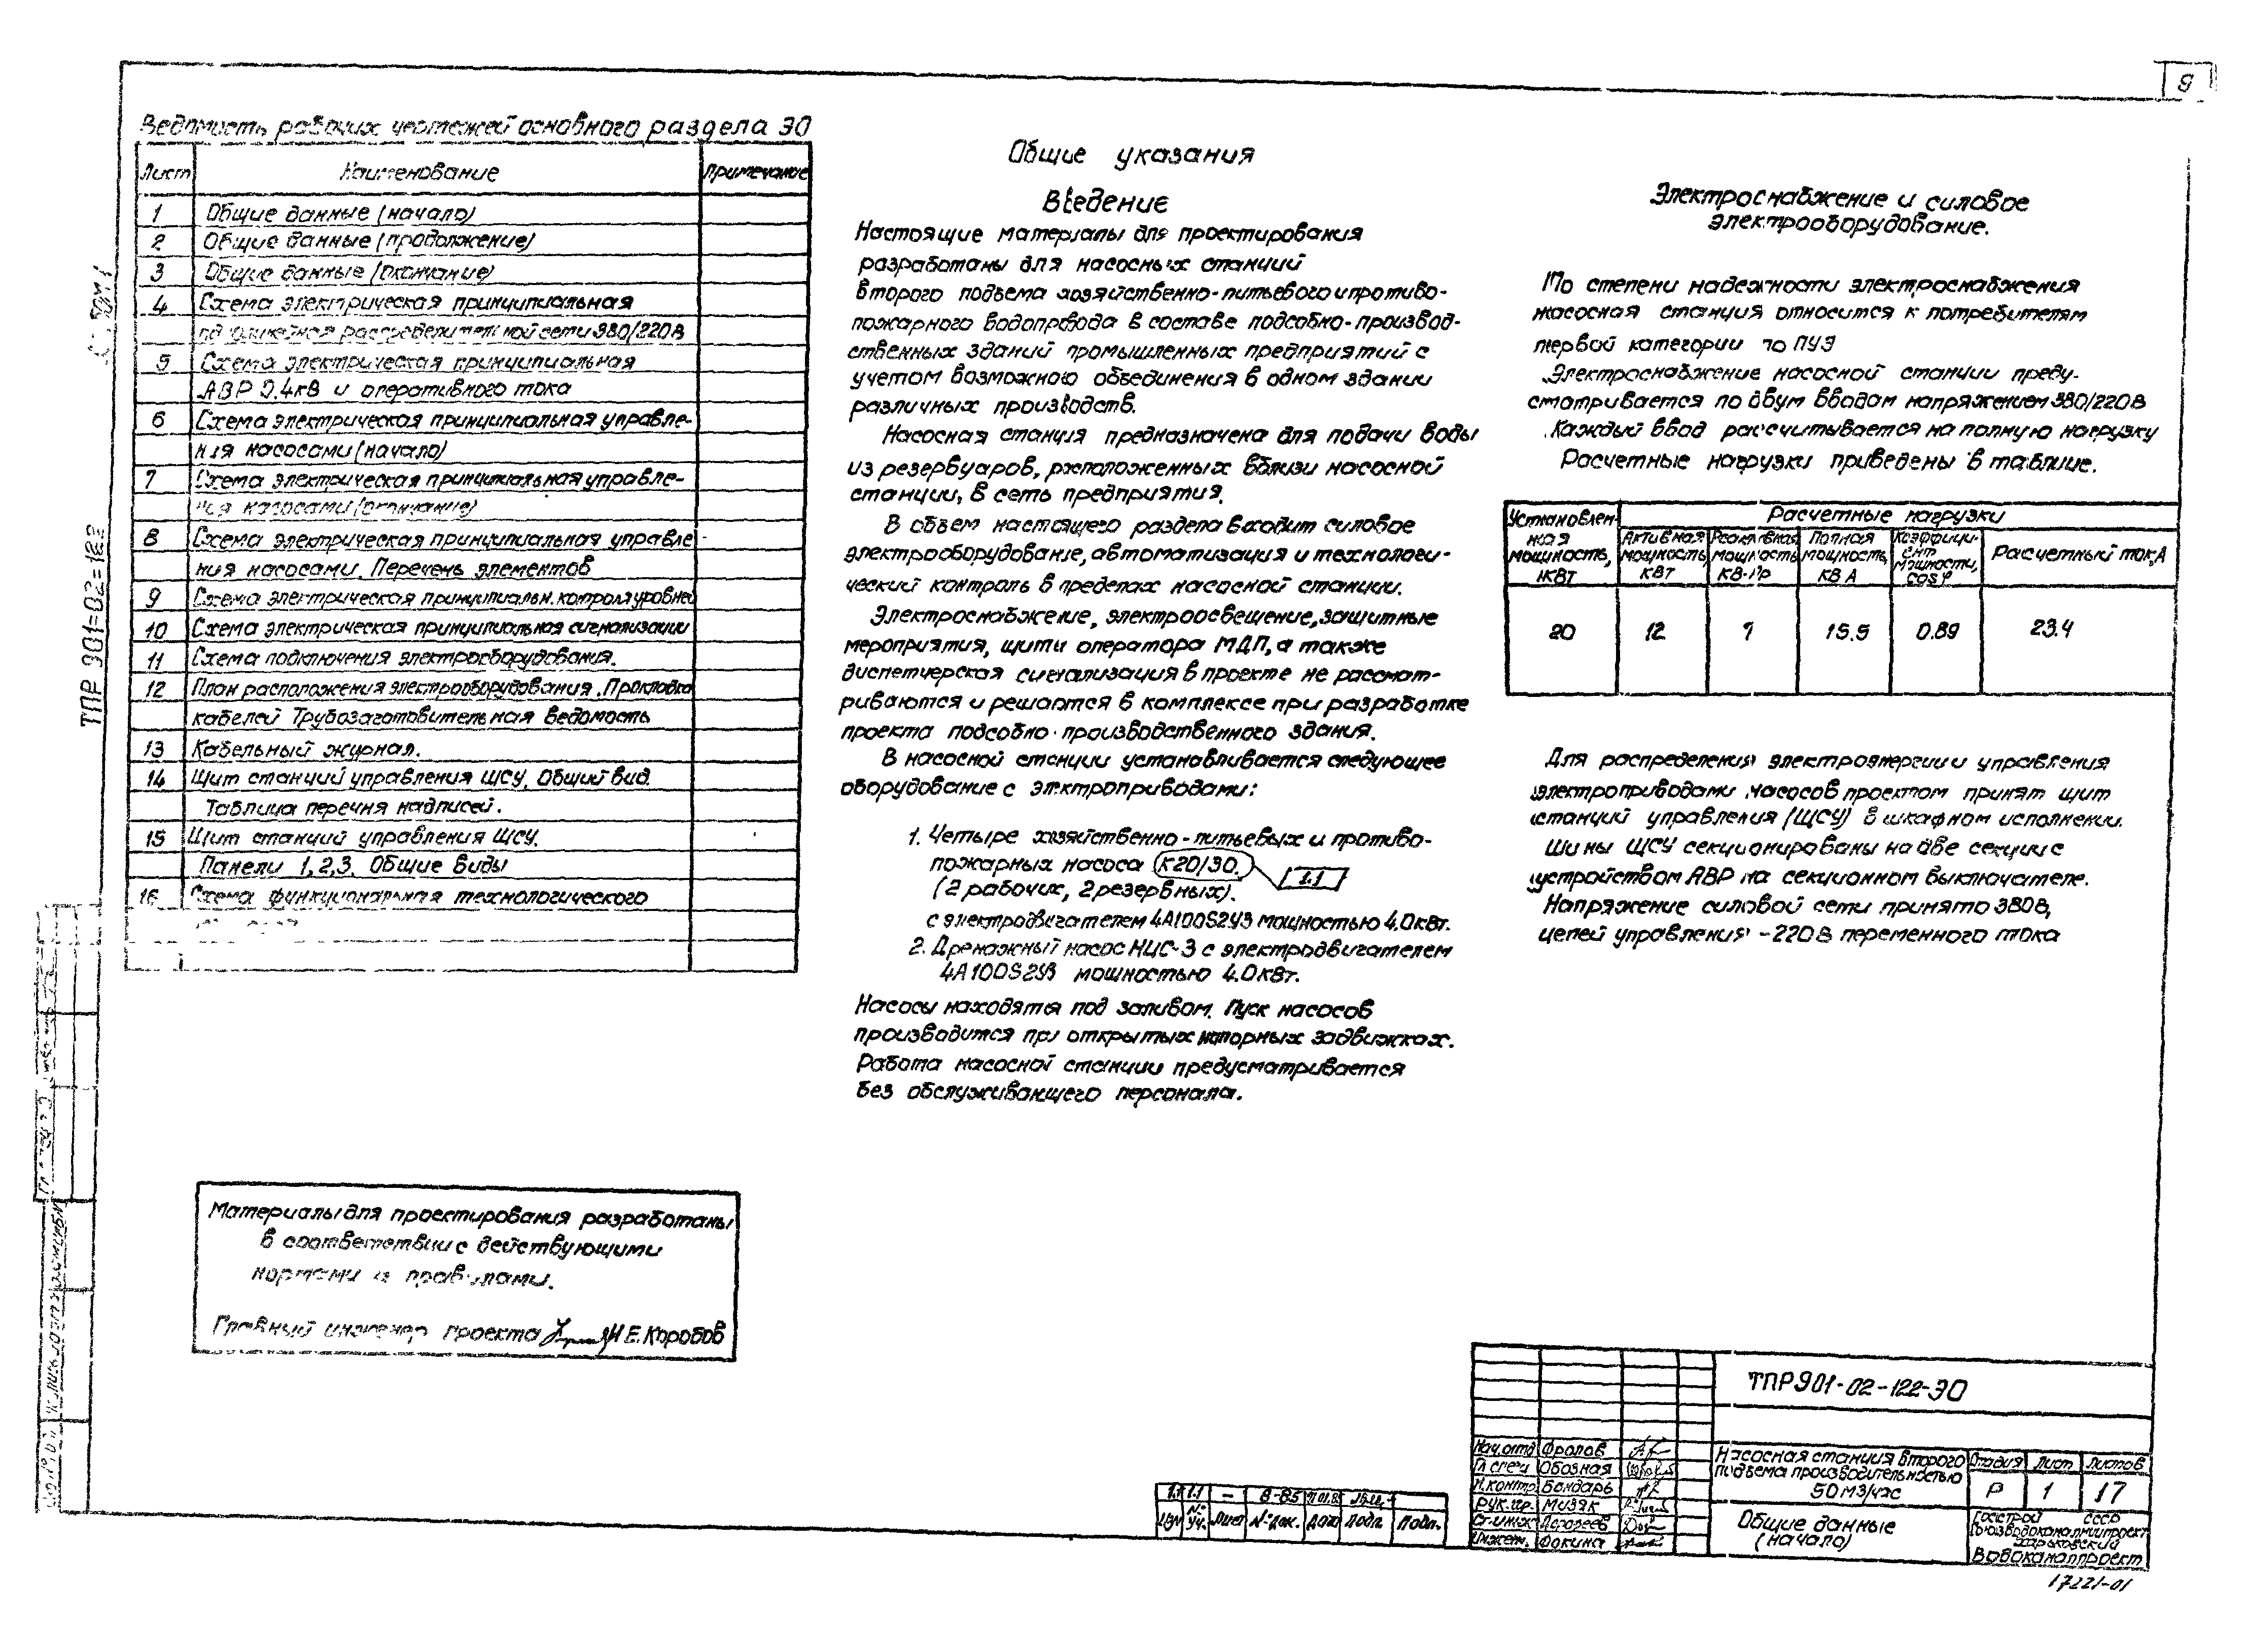 9
Ведомость рабочих чертежей основного раздела ЭО
Лист Наименование Примечание
1 Общие данные (начало)
2 Общие данные (продолжение)
3 Общие данные (окончание)
4 Схема электрическая принципиальная
распределительной сети 380/220 В
5 Схема электрическая принципиальная
АВР 0.4кВ и оперативного тока
6 Схема электрическая принципиальная управле-
ния насосами (начало)
7 Схема электрическая принципиальная управле-
ния насосами (окончание)
8 Схема электрическая принципиальная управле-
ния насосами. Перечень элементов
9 Схема электрическая принципиальн. контроля уровней
10 Схема электрическая принципиальная сигнализации
11 Схема подключения электрооборудования.
12 План расположения электрооборудования. Прокладка
кабелей Трубозаготовительная ведомость
13 Кабельный журнал.
14 Щит станций управления ЩСУ. Общий вид.
Таблица перечня надписей.
15 Щит станций управления ЩСУ.
Панели 1,2,3. Общие виды
16 Схема функциональная технологического
Материалы для проектирования разработаны
в соответствии с действующими
нормами и правилами.
Главный инженер проекта И.Е. Коробов
Общие указания
Введение
Настоящие материалы для проектирования
разработаны для насосных станций
второго подъема хозяйственно-питьевого и противо-
пожарного водопровода в составе подсобно-производ-
ственных зданий промышленных предприятий с
учетом возможного объединения в одном здании
различных производств.
Насосная станция предназначена для подачи воды
из резервуаров, расположенных вблизи насосной
станции, в сеть предприятия.
В объем настоящего раздела входит силовое
электрооборудование, автоматизация и технологи-
ческий контроль в пределах насосной станции.
Электроснабжение, электроосвещение, защитные
мероприятия, щиты оператора МДП, а также
диспетчерская сигнализация в проекте не рассмат-
риваются и решаются в комплексе при разработке
проекта подсобно-производственного здания.
В насосной станции устанавливается следующее
оборудование с электроприводами:
1. Четыре хозяйственно-питьевых и противо-
пожарных насоса К20/30. 1.1
(2 рабочих, 2 резервных).
с электродвигателем 4А100S2У3 мощностью 4.0кВт.
2. Дренажный насос НЦС-3 с электродвигателем
4А100S2У3 мощностью 4.0кВт.
Насосы находятся под заливом. Пуск насосов
производится при открытых напорных задвижках.
Работа насосной станции предусматривается
без обслуживающего персонала.
Электроснабжение и силовое
электрооборудование.
По степени надежности электроснабжения
насосная станция относится к потребителям
первой категории по ПУЭ
Электроснабжение насосной станции преду-
сматривается по двум вводам напряжением 380/220В
Каждый ввод рассчитывается на полную нагрузку
Расчетные нагрузки приведены в таблице.
Установлен-ная мощность, кВт Расчетные нагрузки
Активная мощность, кВт Реактивная мощность кВ·Ар Полная мощность, кВ А Коэффици-ент мощности, cos φ Расчетный ток, А
20 12 9 15.5 0.89 23.4
Для распределения электроэнергии и управления
электроприводами насосов проектом принят щит
станций управления (ЩСУ) в шкафном исполнении.
Шины ЩСУ секционированы на две секции с
устройством АВР на секционном выключателе.
Напряжение силовой сети принято 380В,
цепей управления -220В переменного тока
ТПР 901-02-122-ЭО
Нач.отд Фролов
Гл спец Обозная
Н.контр. Бондарь
Рук.гр. Мизяк
Ст.инж
Инжен. Фокина
Насосная станция второго
подъема производительностью
50 м3/час
Стадия Лист Листов
Р 1 17
Общие данные
(начало)
Госстрой СССР
Союзводоканалниипроект
Харьковский
Водоканалпроект
1.1 1.1 – 8-85
Изм № уч. Лист №док. Дата Подп. Подп.
17221-01